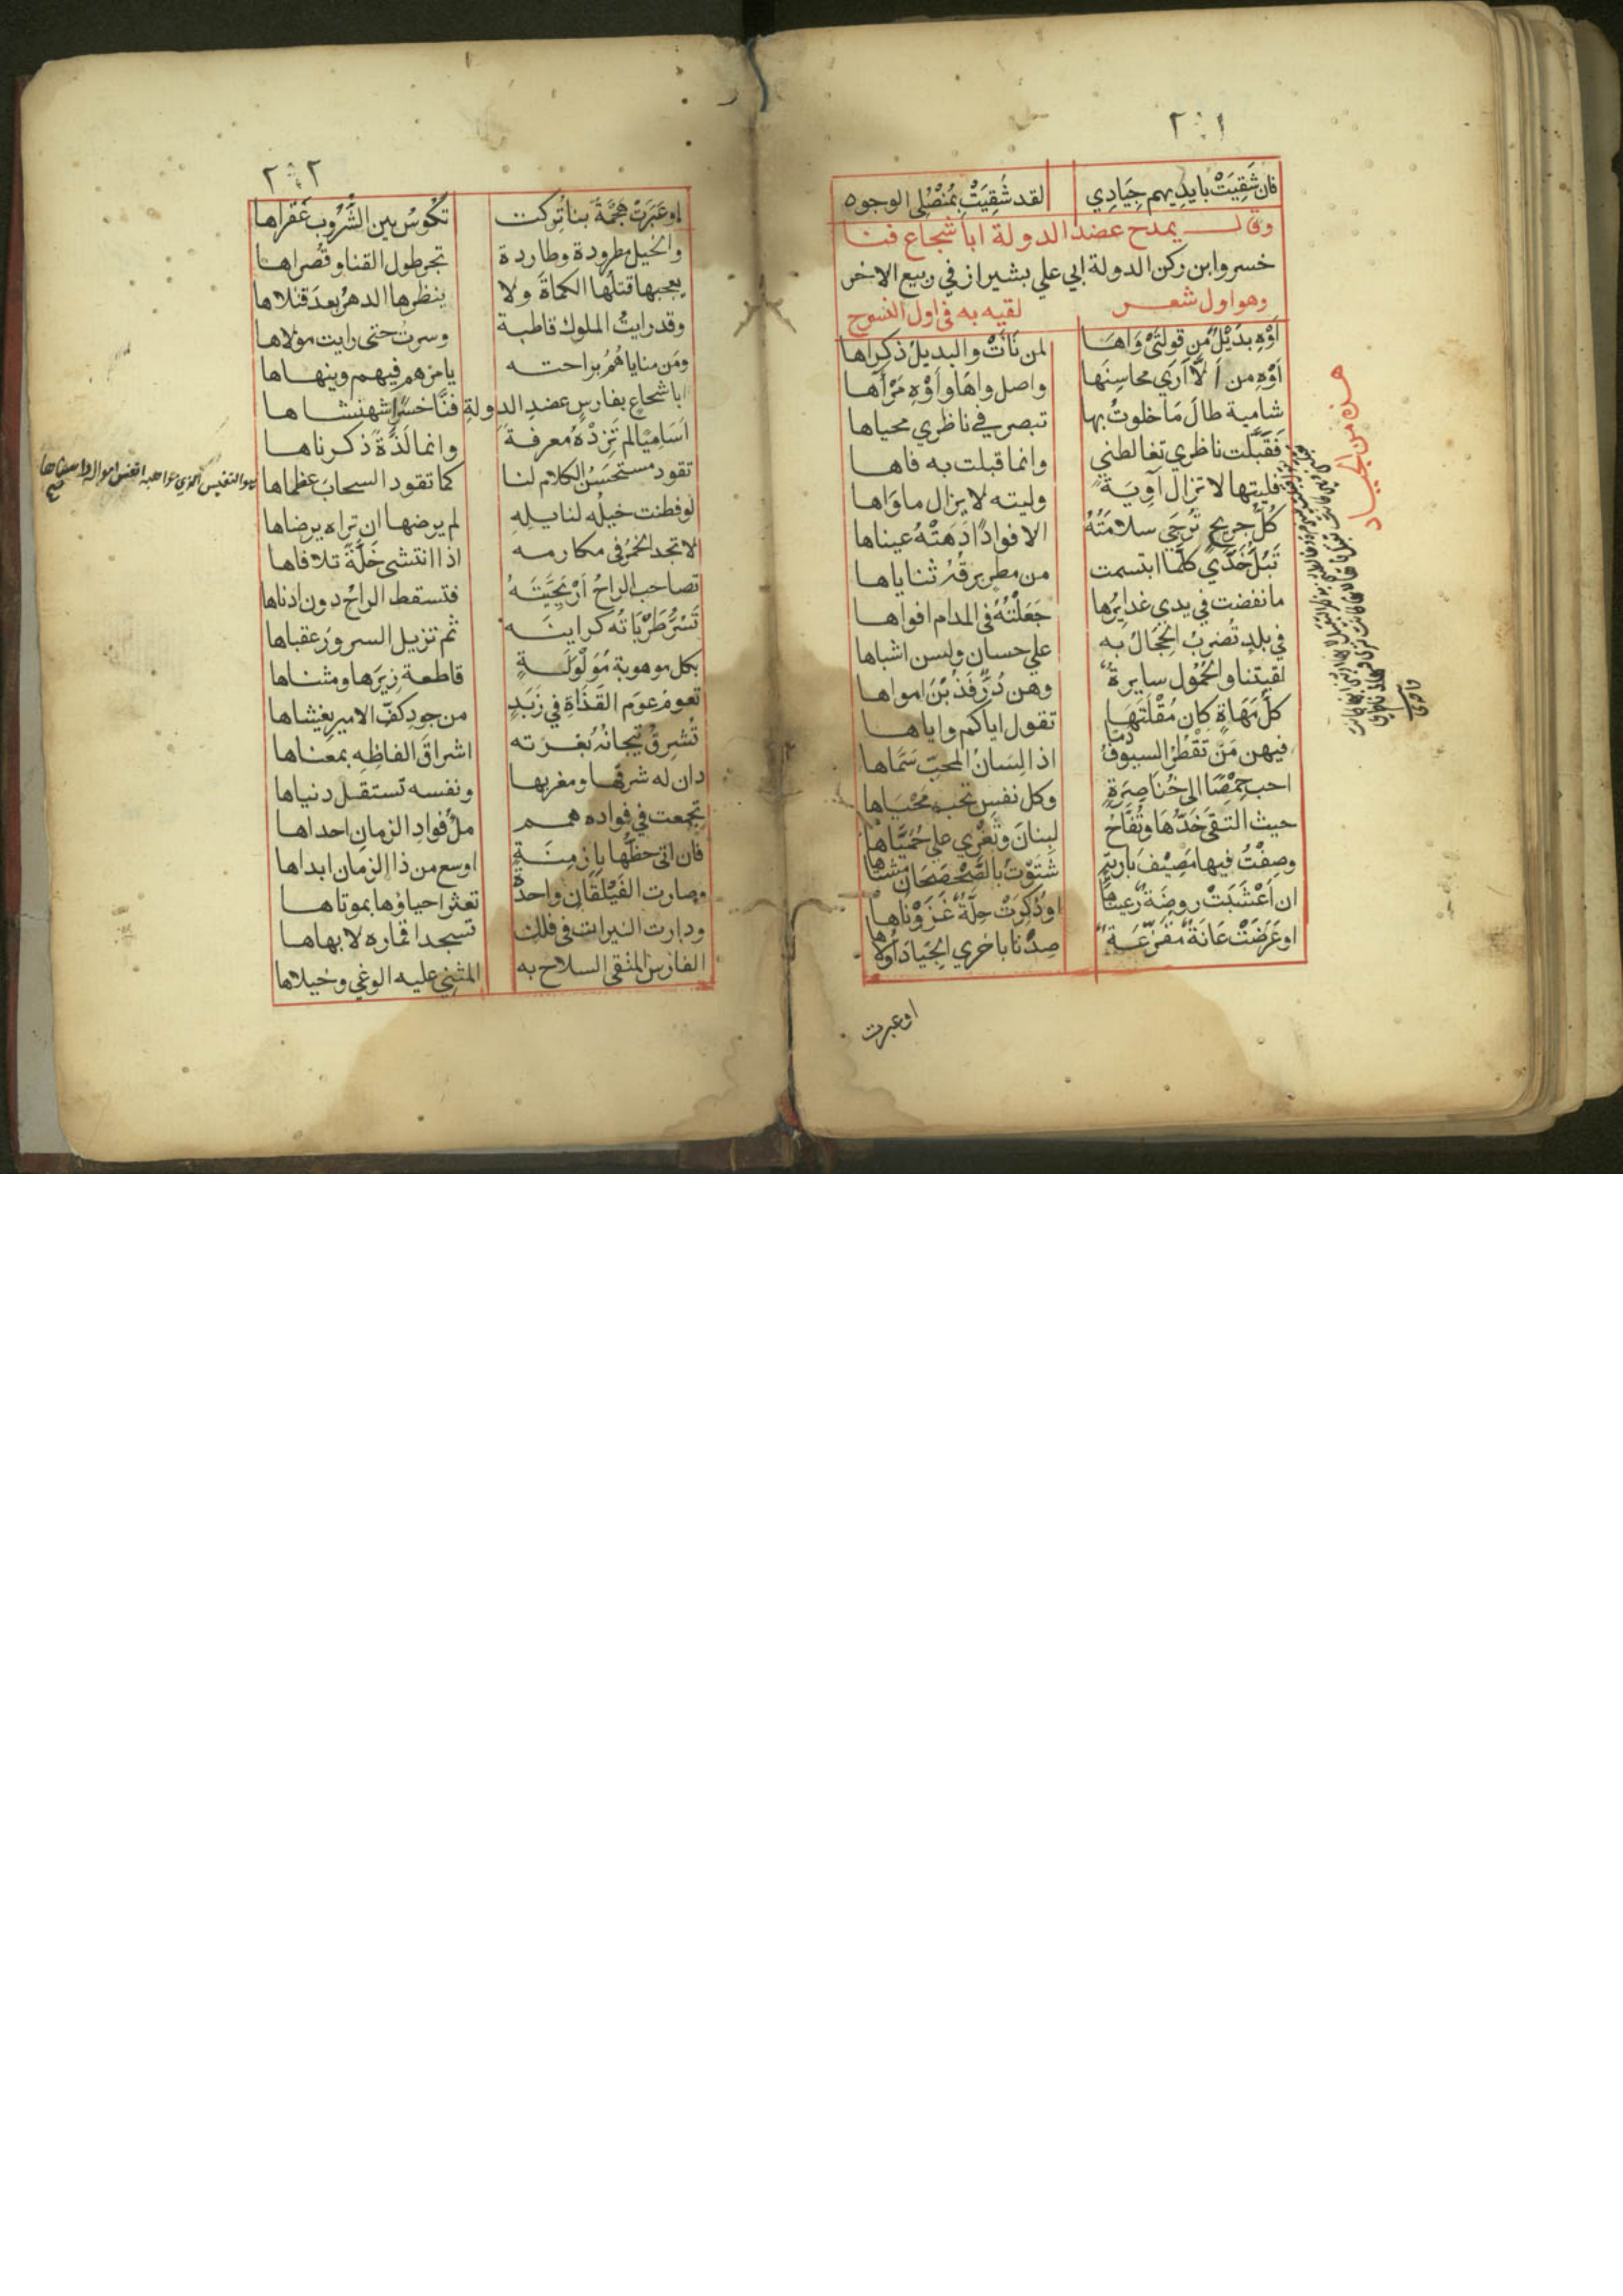 ٢٠١
فان شَقِيَتْ بايدِيهم جِيَادِي لقد شَقِيَتْ بمُنْصُلِي الوجوه
وقال يمدح عضد الدولة ابا شجاع فنا
خسرو ابن ركن الدولة ابي علي بشيراز في ربيع الاخر
وهو اول شعر لقيه به في اول
أوْهِ بَدِيْلٌ مِن قولَتِي وَاهَا لمن نَأتْ والبديلُ ذكراها
أوْهِ من أَلَّا أَرَي محاسِنَها واصل واهًا وأوْهِ مَرْآها
شامية طالَ مَا خلوتُ بها تبصر في ناظري محياها
فَقَبَّلت ناظري تغالطني وانما قبلت به فاها
فليتها لا تزال آوِيَةً وليته لا يزال ماوَاها
كُلُّ جريحٍ تُرْجَي سلامَتُهُ الا فوادًا دَهَتْهُ عيناها
تَبُلُّ خَدَّيَ كلَّما ابتسمت من مطرٍ برقُهُ ثناياها
ما نفضت في يدي غدايِرُها جَعَلْتُهُ في المدام افواها
في بلدٍ تُضرَبُ الحِجَالُ به علي حسانٍ ولسن اشباها
لقيتنا والحُمُول سايرةٌ وهن دُرٌّ فَذُبْنَ امواها
كلُّ مَهَاةٍ كان مُقْلَتَهَا تقول اياكم واياها
فيهن مَنْ تَقْطُرُ السيوفُ دما اذا لِسَانُ المحبّ سَمَّاها
احب حِمْصًا الي خُنَاصِرَةٍ وكل نفسٍ تحب مَحْيَاها
حيث التقي خَدُّهَا وتُفَّاحُ لبنانَ وثَغْرِي علي حُمَيَّاها
وصِفْتُ فيها مَصِيْفَ باديةٍ شَتَوْتُ بالصَّحْصَحَانِ مشتاها
ان أعْشَبَتْ روضةٌ رَعَيناها او ذُكِرَتْ حِلَّةٌ غَزَوْنَاها
او عَرَضَتْ عَانَةٌ مُقَزَّعَةٌ صِدْنا باخري الجِيَادِ أُولاها
هذه من الجياد
او عبرت
٢٠٢
او عَبَرَتْ هَجْمَةٌ بنا تُرِكت تَكُوسُ بين الشُّرُوبِ عَقراها
والخيل مطرودة وطاردة تجر طول القنا وقُصراها
يعجبها قتلها الكماةَ ولا ينظرها الدهرُ بعدَ قتلاها
وقد رايتُ الملوك قاطبة وسرت حتي رايت مولاها
ومَن مناياهُمُ براحته يامرهم فيهم وينهاها
ابا شجاعٍ بفارسٍ عضد الدولةِ فنَّاخسرًا شهنشاها
أسَامِيًا لم تَزِدْهُ معرفةً وانما لذَّةً ذكرناها
تقود مستحسَنُ الكلام لنا كما تقود السحابَ عظماها
هو النفيس الذي مواهبه انفس امواله واسناها
صح
لو فطنت خيلُه لنايله لم يرضها ان تراه يرضاها
لا تجد الخمرُ في مكارمه اذا انتشي خَلَّةً تلافاها
تصاحب الراحُ أرْيَحِيَّتَهُ فتسقط الراحُ دون ادناها
تَسُرُّ طَرْبَاتُه كراينَه ثم تزيل السرورَ عقباها
بكل موهوبة مُوَلْوِلَةٍ قاطعة زِيرَها ومثناها
تعوم عومَ القَذَاةِ في زَبَدٍ من جودِ كفِّ الاميرِ يغشاها
تُشرِقُ تيجانُهُ بُغُرَّته اشراقَ الفاظِهِ بمعناها
دان له شرقها ومغربها ونفسه تستقل دنياها
تجمعت في فواده همم ملُ فوادِ الزمانِ احداها
فان اتي حظُّها بازمِنَةٍ اوسع من ذا الزمان ابداها
وصارت الفَيْلَقَانِ واحدةً تعثر احياؤها بموتاها
ودارت النيرات في فلك تسجد اقماره لابهاها
الفارس المتقي السلاح به المثني عليه الوغي وخيلاها